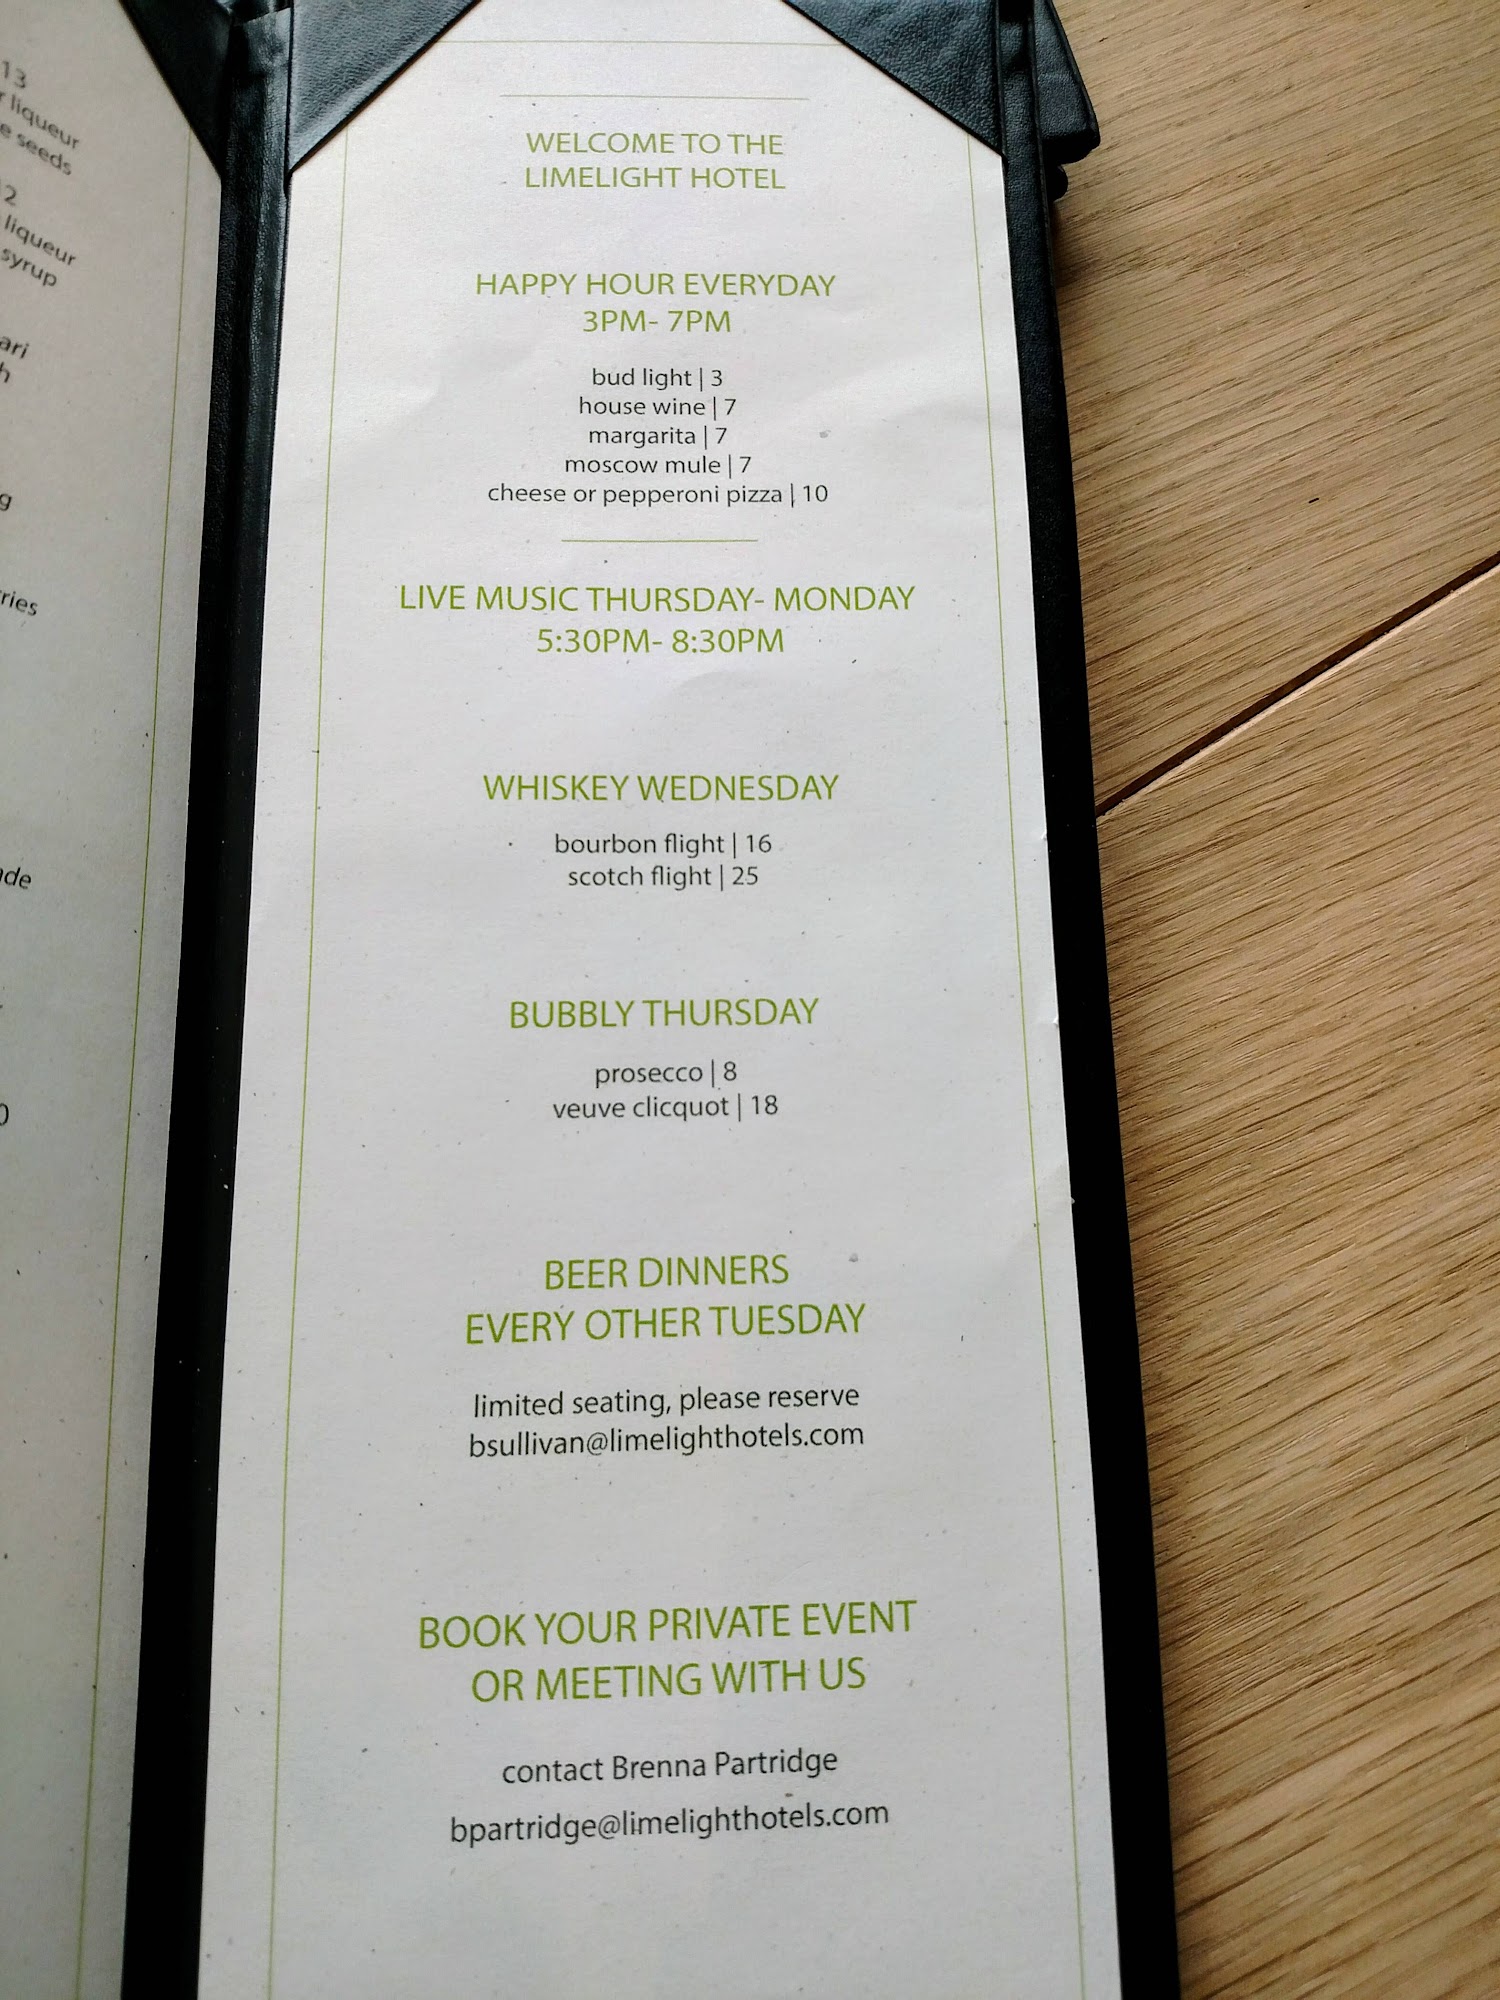 13
liqueur
seeds
liqueur
syrup
WELCOME TO THE
LIMELIGHT HOTEL
HAPPY HOUR EVERYDAY
3PM- 7PM
bud light | 3
house wine | 7
margarita | 7
moscow mule | 7
cheese or pepperoni pizza | 10
LIVE MUSIC THURSDAY- MONDAY
5:30PM- 8:30PM
WHISKEY WEDNESDAY
bourbon flight | 16
scotch flight | 25
BUBBLY THURSDAY
prosecco | 8
veuve clicquot | 18
BEER DINNERS
EVERY OTHER TUESDAY
limited seating, please reserve
bsullivan@limelighthotels.com
BOOK YOUR PRIVATE EVENT
OR MEETING WITH US
contact Brenna Partridge
bpartridge@limelighthotels.com